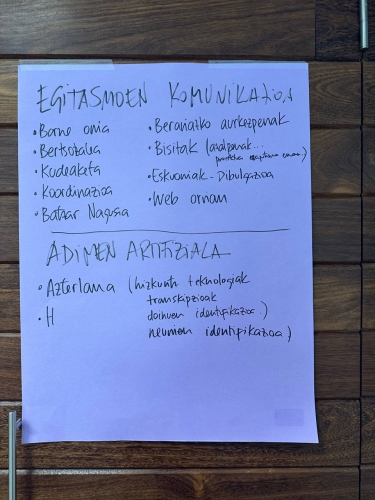 EGITASMOEN KOMUNIKAZIOA
• Barne oria
• Bertsozalea
• Kudeaketa
• Koordinazioa
• Batzar Nagusia
• Berariazko aurkezpenak
• Bisitak (
• Eskuoriak - Dibulgazioa
• Web orrian
ADIMEN ARTIFIZIALA
• Azterlana (hizkuntz teknologiak
transkripzioak
doinuen identifikazioa)
neurrien identifikazioa)
• H